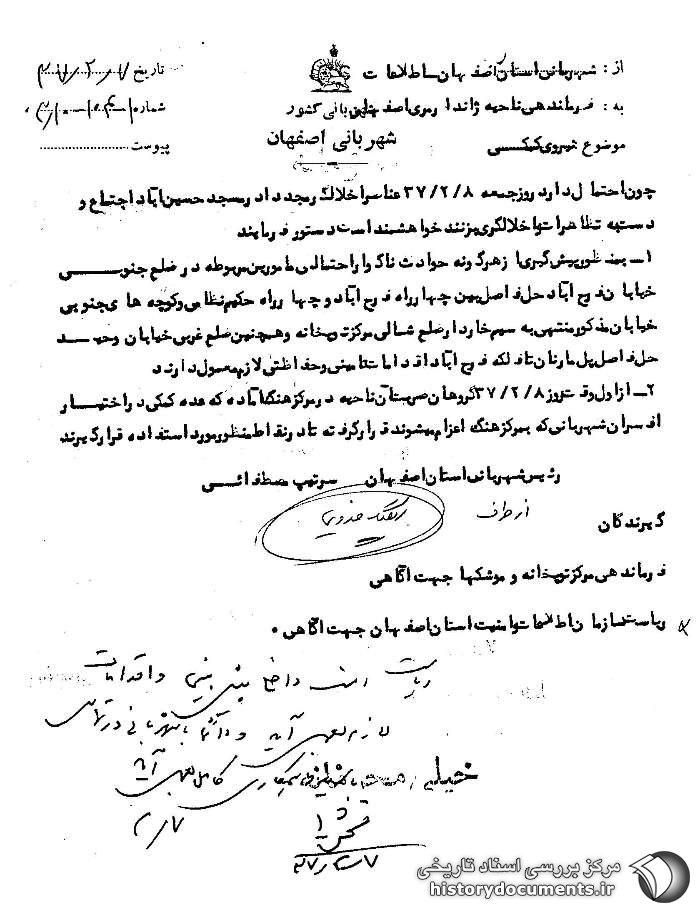 از : شهربانی استان اصفهان اطلاعات
به : فرماندهی ناحیه ژاندارمری اصفهان
شهربانی کشور
شهربانی اصفهان
موضوع نیروی کمکی
تاریخ
شماره
پیوست
چون احتمال دارد روز جمعه ۳۷/۲/۸ عناصر اخلالگر مجدداً در مسجد حسین اباد اجتماع و
دست به تظاهرات و اخلالگری بزنند خواهشمند است دستور فرمایند
۱ـ بمنظور پیش گیری از هرگونه حوادث ناگوار احتمالی مامورین مربوطه در ضلع جنوبــی
خیابان فرح آباد حد فاصل بین چهار راه فرح آباد و چهار راه حکیم نظامی و کوچه های جنوبی
خیابان مذکور منتهی به سیم خاردار ضلع شمالی مرکز توپخانه و همچنین ضلع غربی خیابان وحیــد
حد فاصل پل مارنان تا فلکه فرح آباد اقدامات تامینی و حفاظتی لازم معمول دارند
۲ـ از اول وقت روز ۳۷/۲/۸ گروهان سرپستان ناحیه در مرکز هنگ آماده که عده کمکی در اختیــار
افسران شهربانی که بمرکز هنگ اعزام میشوند قرار گرفته تا در نقاط منظور مورد استفاده قرار گیرند
رئیس شهربانی استان اصفهان سرتیپ مصطفائــی
از طرف
گیرندگان
فرماندهی مرکز توپخانه و موشکها جهت آگاهی
ریاست سازمان اطلاعات و امنیت استان اصفهان جهت آگاهی .
ریاست امنیت داخلی پیش بینی و اقدامات
لازم بعمل آید و دائماً با شهربانی در تماس
خیلی همکاری کامل بعمل آید
مرکز بررسی اسناد تاریخی
historydocuments.ir